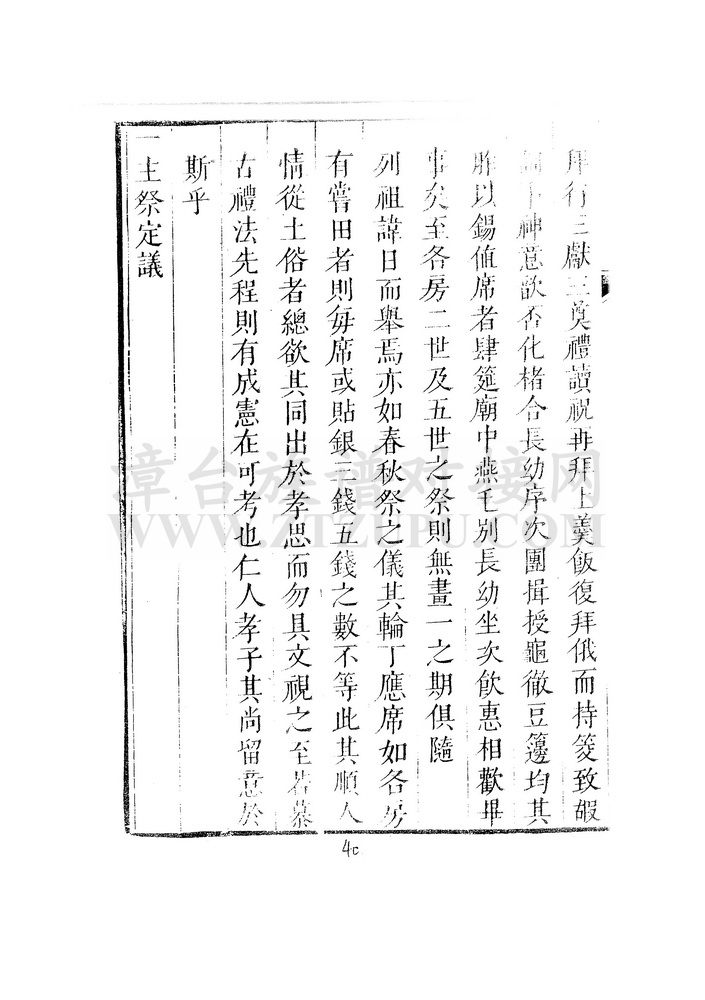 拜行三獻三奠禮讀祝再拜上羹飯復拜俄而持筊致嘏
詞卜神意歆否化楮合長幼序次團揖授龜徹豆籩均其
胙以錫值席者肆筵廟中燕毛別長幼坐次飲惠相歡畢
事矣至各房二世及五世之祭則無畫一之期俱隨
列祖諱日而舉焉亦如春秋祭之儀其輪丁應席如各房
有嘗田者則每席或貼銀三錢五錢之數不等此其順人
情從土俗者總欲其同出於孝思而勿具文視之至若慕
古禮法先程則有成憲在可考也仁人孝子其尚留意於
斯乎
一主祭定議
40
漳台族譜对接网
WWW.ZTZUPU.COM